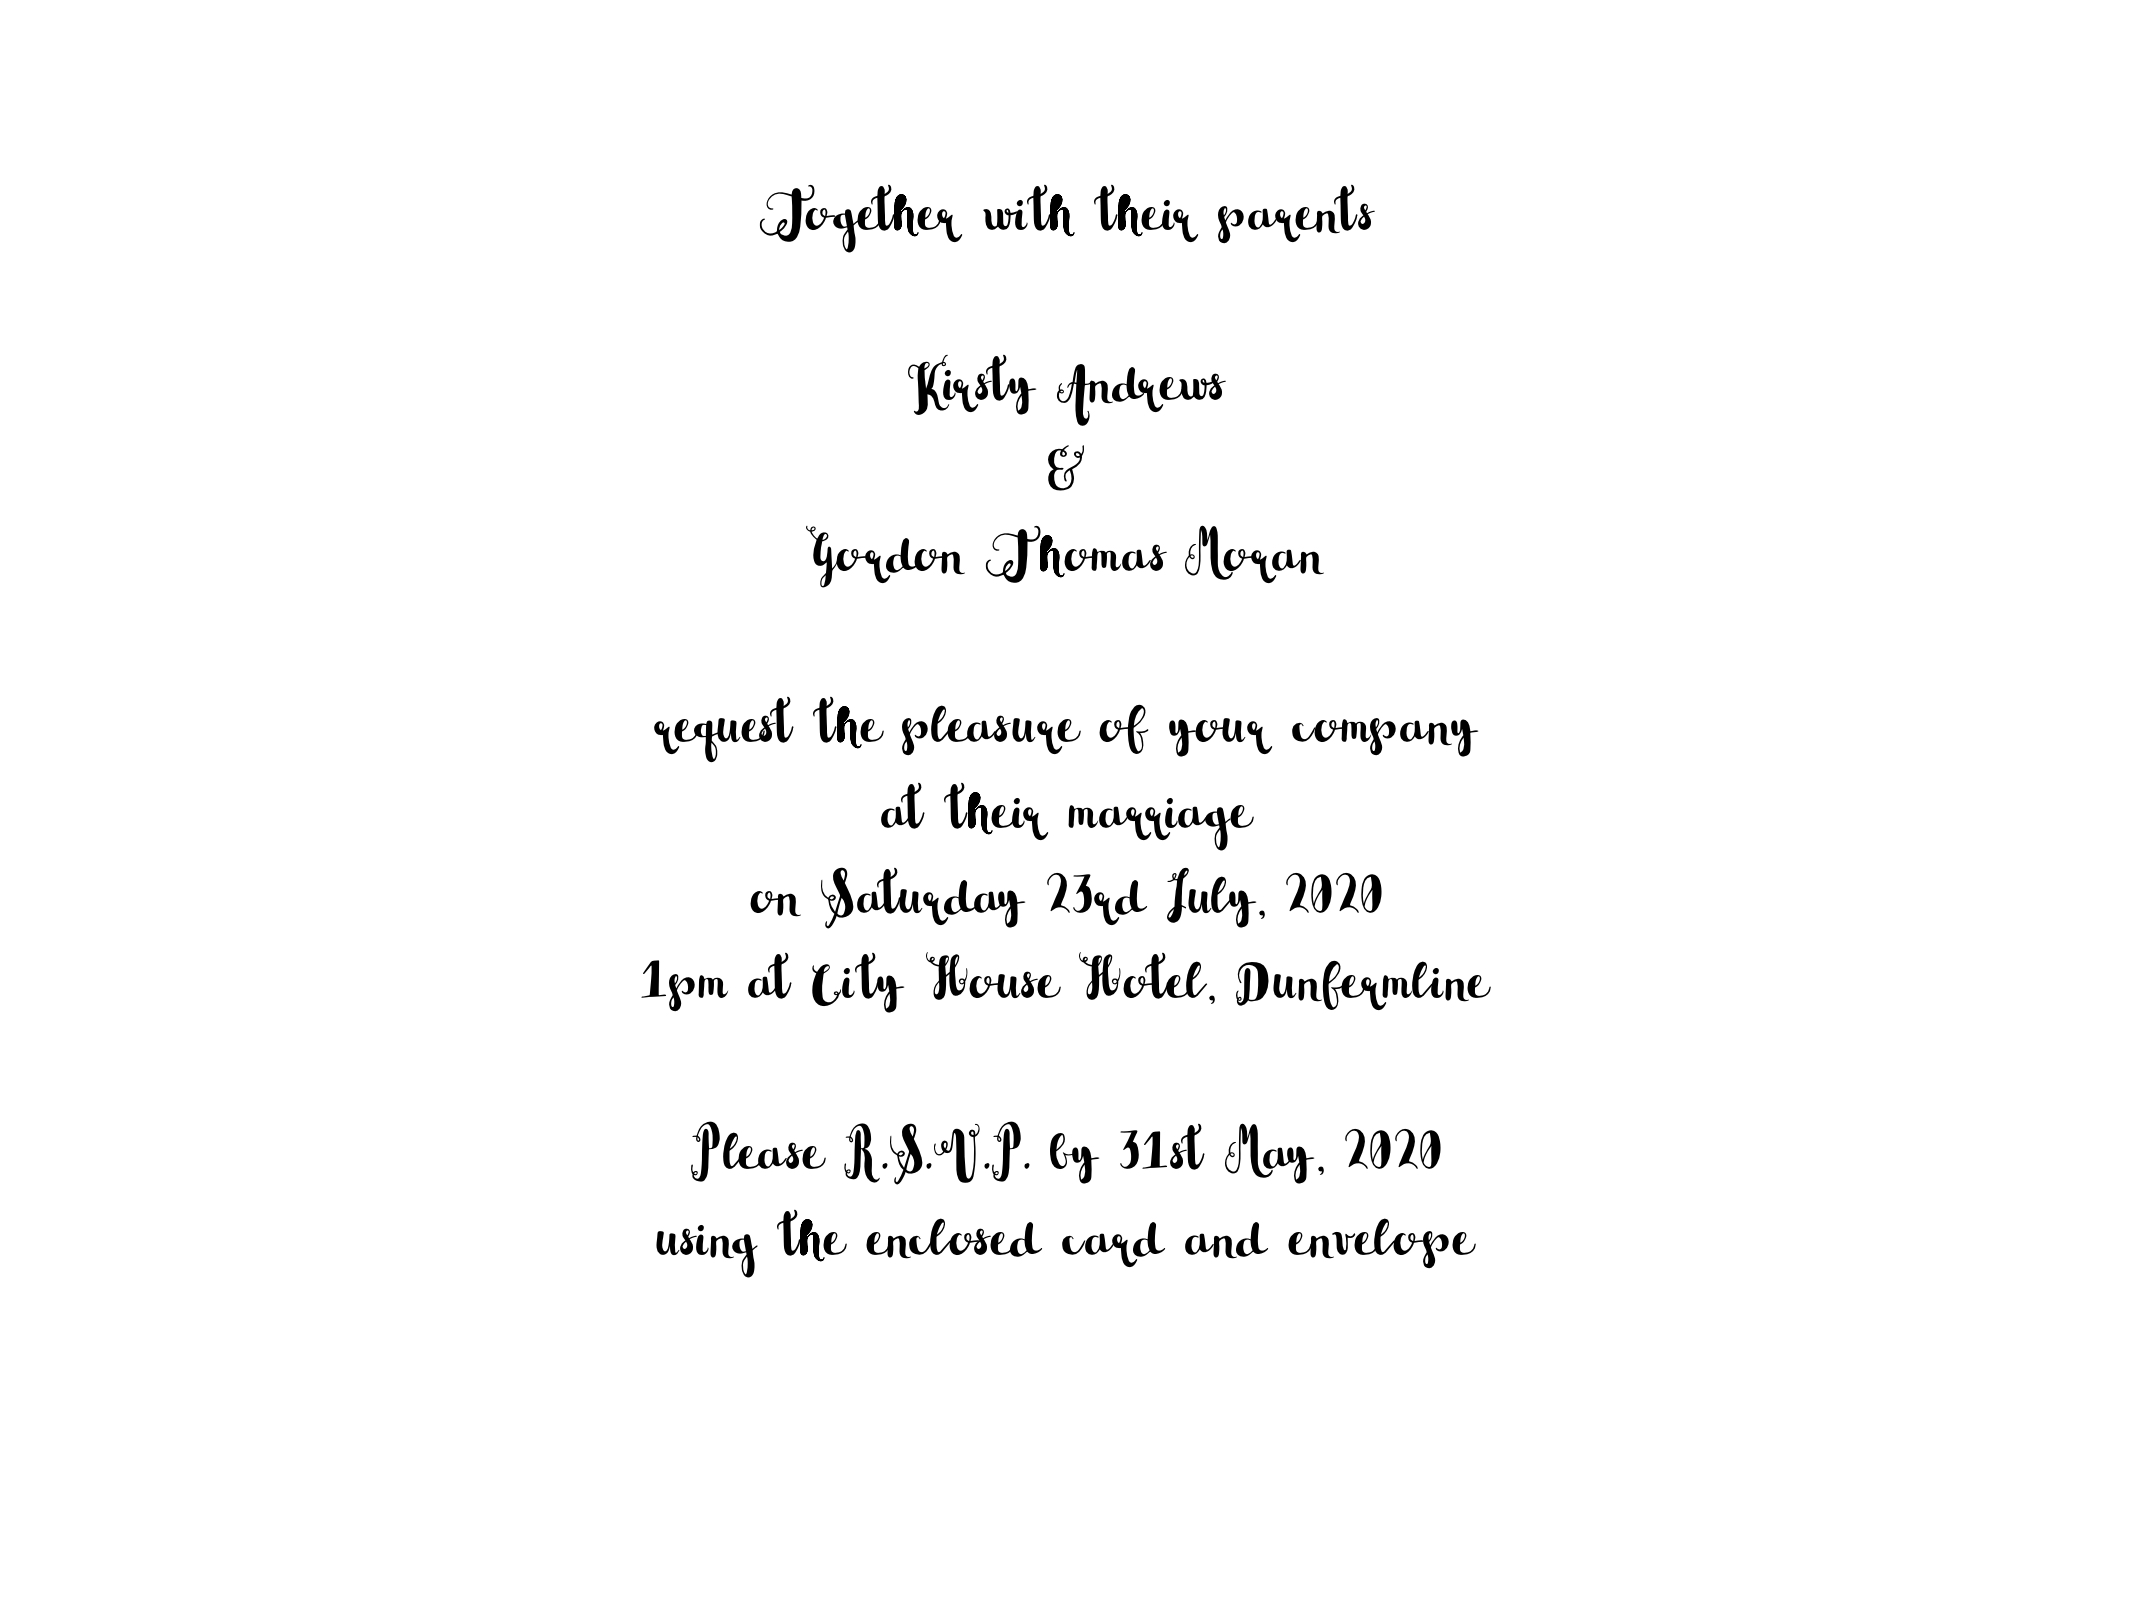 Together with their parents
Kirsty Andrews
&
Gordon Thomas Moran
request the pleasure of your company
at their marriage
on Saturday 23rd July, 2020
1pm at City House Hotel, Dunfermline
Please R.S.V.P. by 31st May, 2020
using the enclosed card and envelope